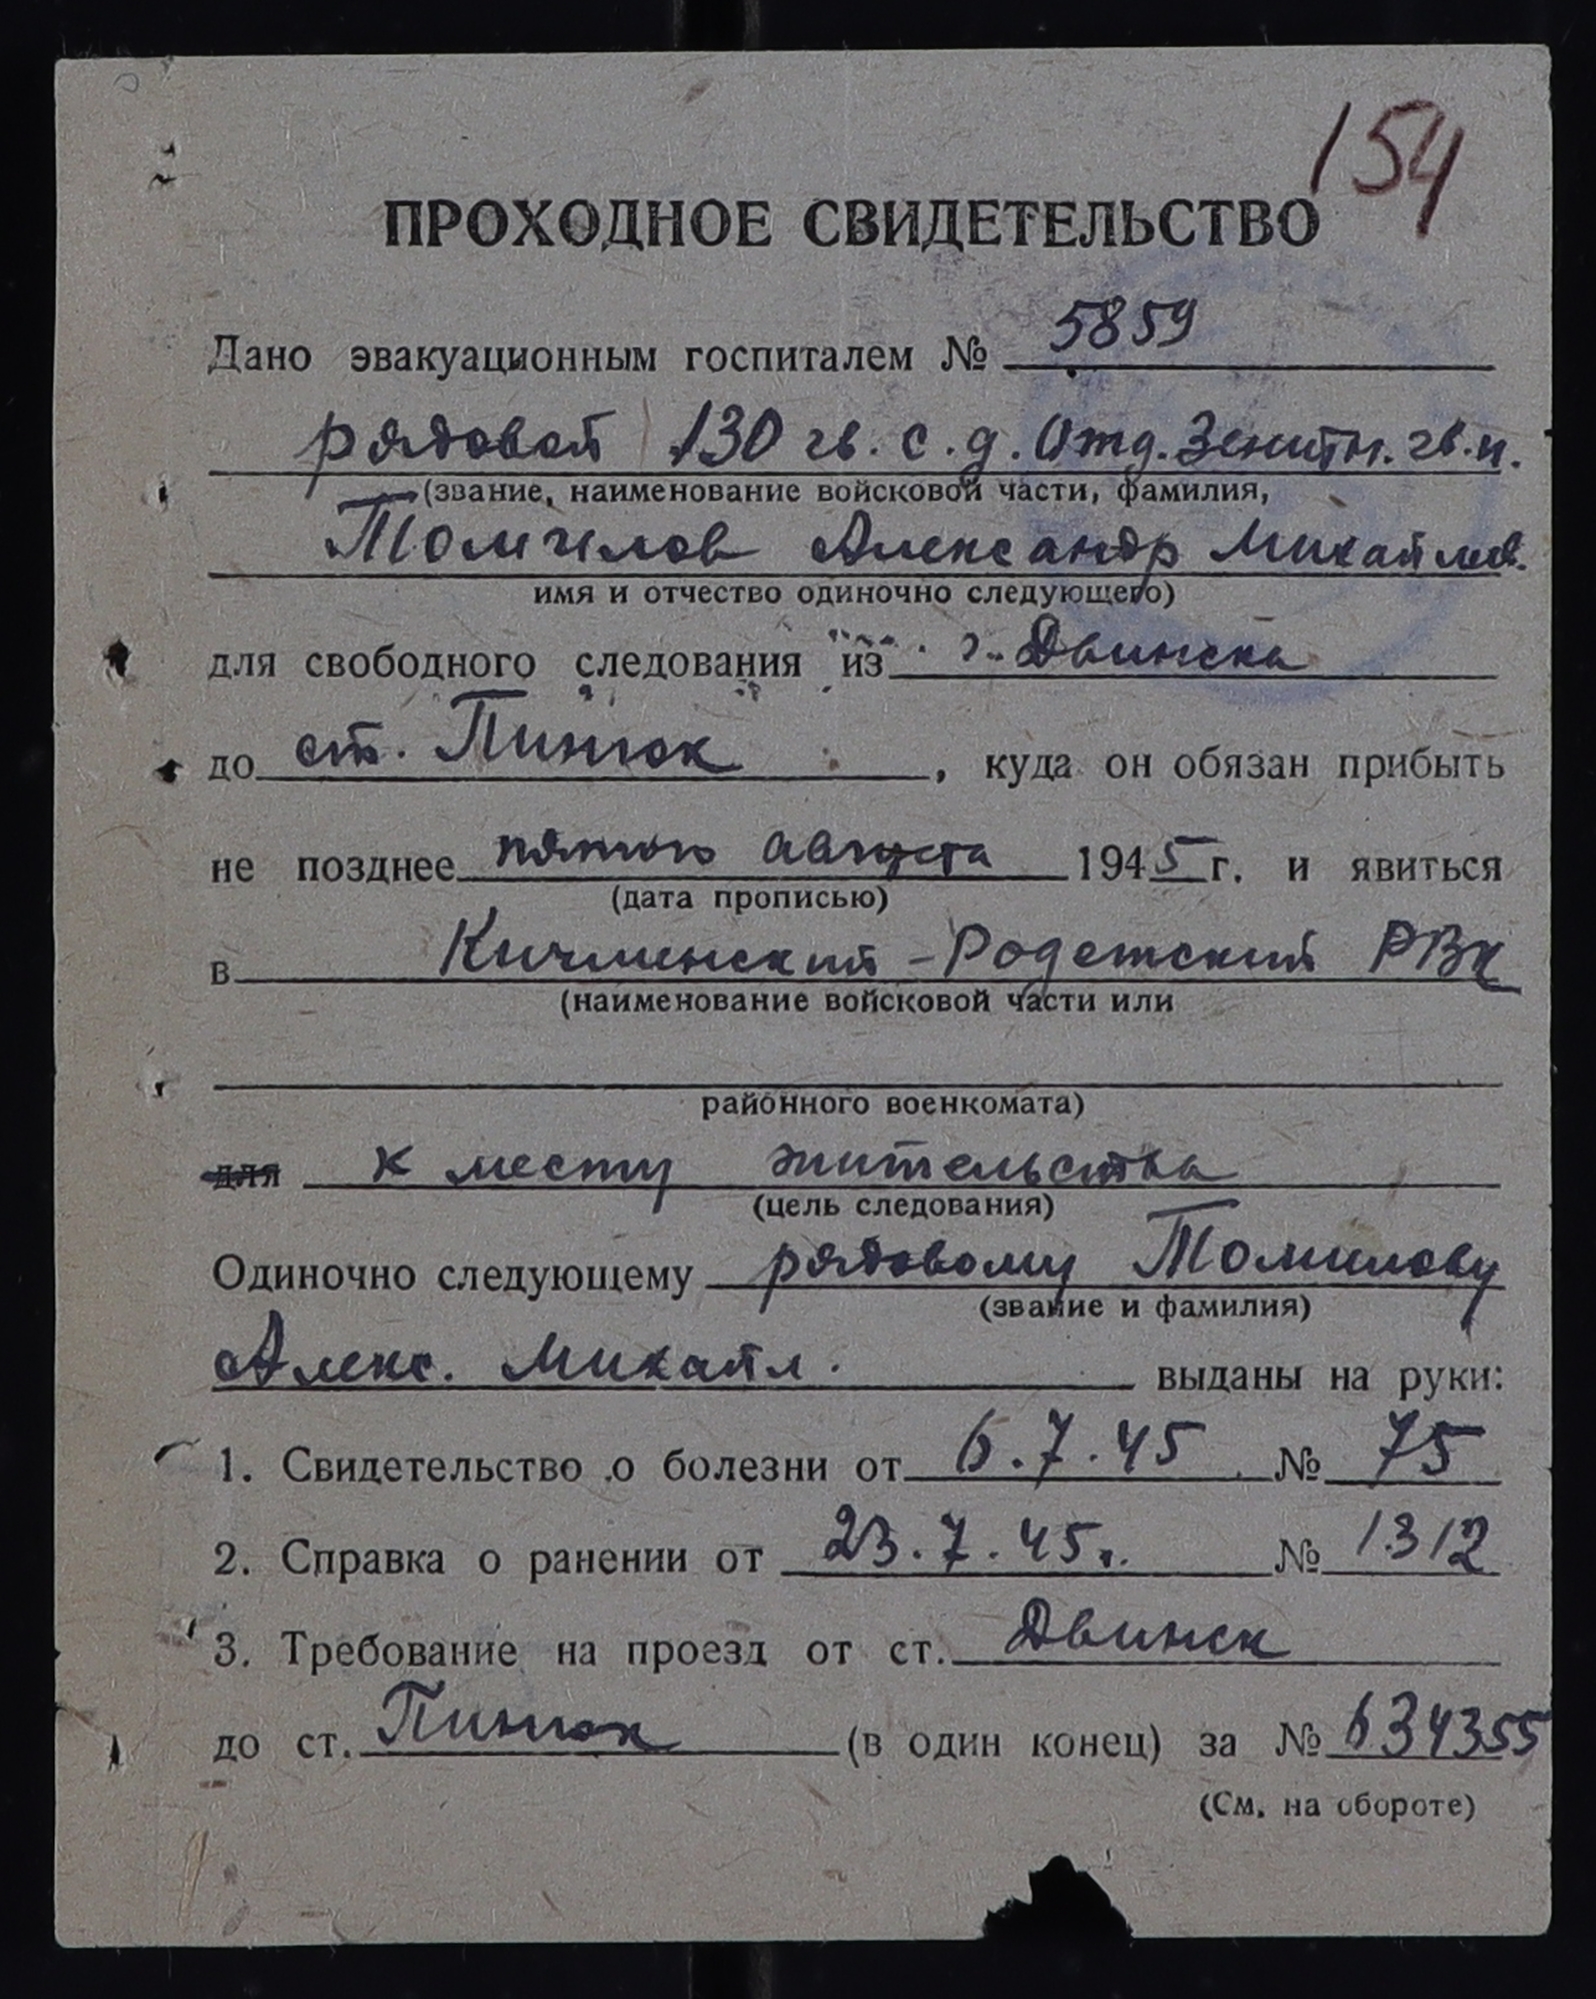 154
ПРОХОДНОЕ СВИДЕТЕЛЬСТВО
Дано эвакуационным госпиталем № 5859
рядовой 130 гв. с. д. Отд. Зенитн. гв. п.
(звание, наименование войсковой части, фамилия,
Томилов Александр Михайлов.
имя и отчество одиночно следующего)
для свободного следования из г. Двинска
до ст. Пинюк , куда он обязан прибыть
не позднее пятого августа 1945 г. и явиться
в Кичменский - Родетский РВК
(наименование войсковой части или
районного военкомата)
для к месту жительства
(цель следования)
Одиночно следующему рядовому Томилову
(звание и фамилия)
Алекс. Михайл. выданы на руки:
1. Свидетельство о болезни от 6.7.45 № 75
2. Справка о ранении от 23.7.45г. № 1312
3. Требование на проезд от ст. Двинск
до ст. Пинюк (в один конец) за № 634355
(См. на обороте)